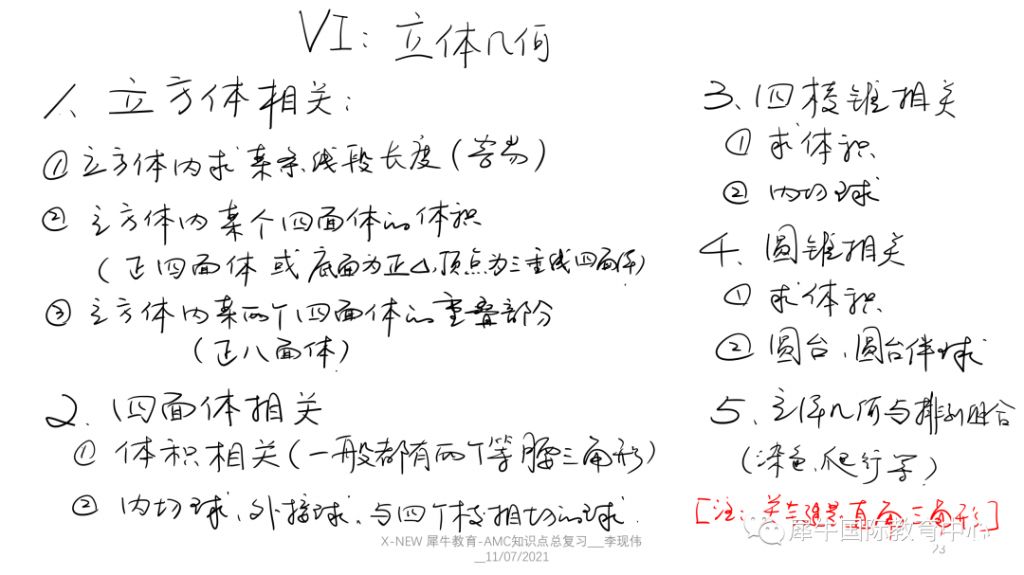 VI: 立体几何
1、立方体相关:
① 立方体内求某条线段长度(容易)
② 立方体内某个四面体的体积
(正四面体 或 底面为正△,顶点为三垂线四面体)
③ 立方体内某两个四面体的重叠部分
(正八面体)
2、四面体相关
① 体积相关(一般都有两个等腰三角形)
② 内切球、外接球、与四个棱相切的球.
3、四棱锥相关
① 求体积
② 内切球
4、圆锥相关
① 求体积
② 圆台、圆台伴球
5、立体几何与排列组合
(染色,爬行等)
[注: 关键是直角三角形]
犀牛国际教育中心
X-NEW 犀牛教育-AMC知识点总复习__李现伟
__11/07/2021
23